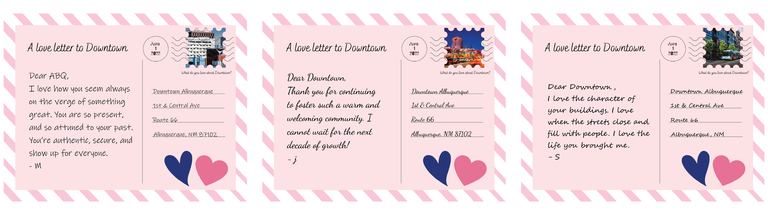 A love letter to Downtown
June
1
2022
What do you love about Downtown?
Dear ABQ,
I love how you seem always
on the verge of something
great. You are so present,
and so attuned to your past.
You're authentic, secure, and
show up for everyone.
- M
Downtown Albuquerque
1st & Central Ave
Route 66
Albuquerque, NM 87102
A love letter to Downtown
June
1
2022
What do you love about Downtown?
Dear Downtown,
Thank you for continuing
to foster such a warm and
welcoming community. I
cannot wait for the next
decade of growth!
- J
Downtown Albuquerque
1st & Central Ave
Route 66
Albuquerque, NM 87102
A love letter to Downtown
June
1
2022
What do you love about Downtown?
Dear Downtown,
I love the character of
your buildings. I love
when the streets close and
fill with people. I love the
life you brought me.
- S
Downtown Albuquerque
1st & Central Ave
Route 66
Albuquerque, NM